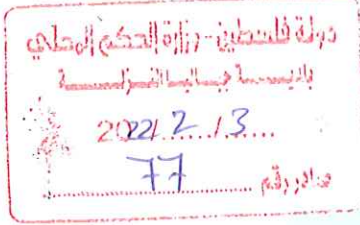 دولة فلسطين - وزارة الحكم المحلي
بلديـــة جباليا النزلـــة
2022/2/3
صادر رقم 77